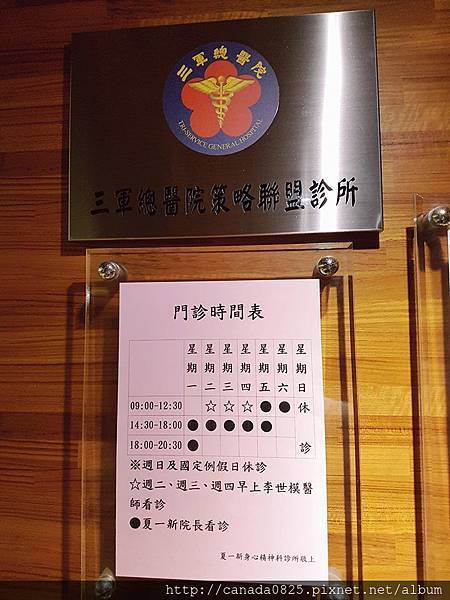 三軍總醫院
TRI-SERVICE GENERAL HOSPITAL
三軍總醫院策略聯盟診所
門診時間表
星期一 星期二 星期三 星期四 星期五 星期六 星期日
09:00-12:30 ☆ ☆ ☆ ● ● 休
14:30-18:00 ● ● ● ● ●
18:00-20:30 ● 診
※週日及國定例假日休診
☆週二、週三、週四早上李世模醫
師看診
●夏一新院長看診
夏一新身心精神科診所敬上
http://canada0825.pixnet.net/album